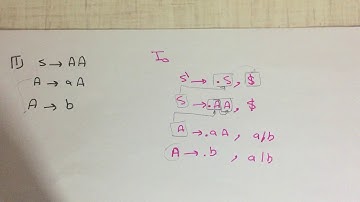 [1] S → AA
A → aA
A → b
I₀
S' → .S, $
S → .AA, $
A → .aA, a/b
A → .b, a|b